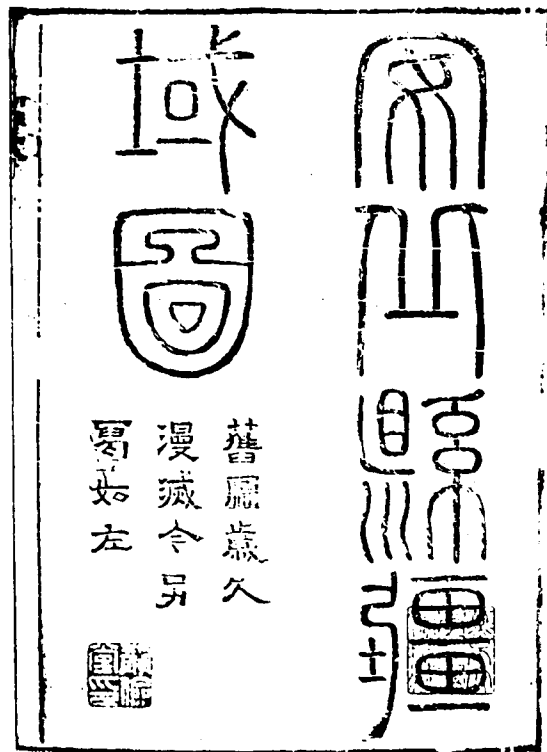 安丘縣疆
域圖
舊圖歲久
漫滅今另
寫如左